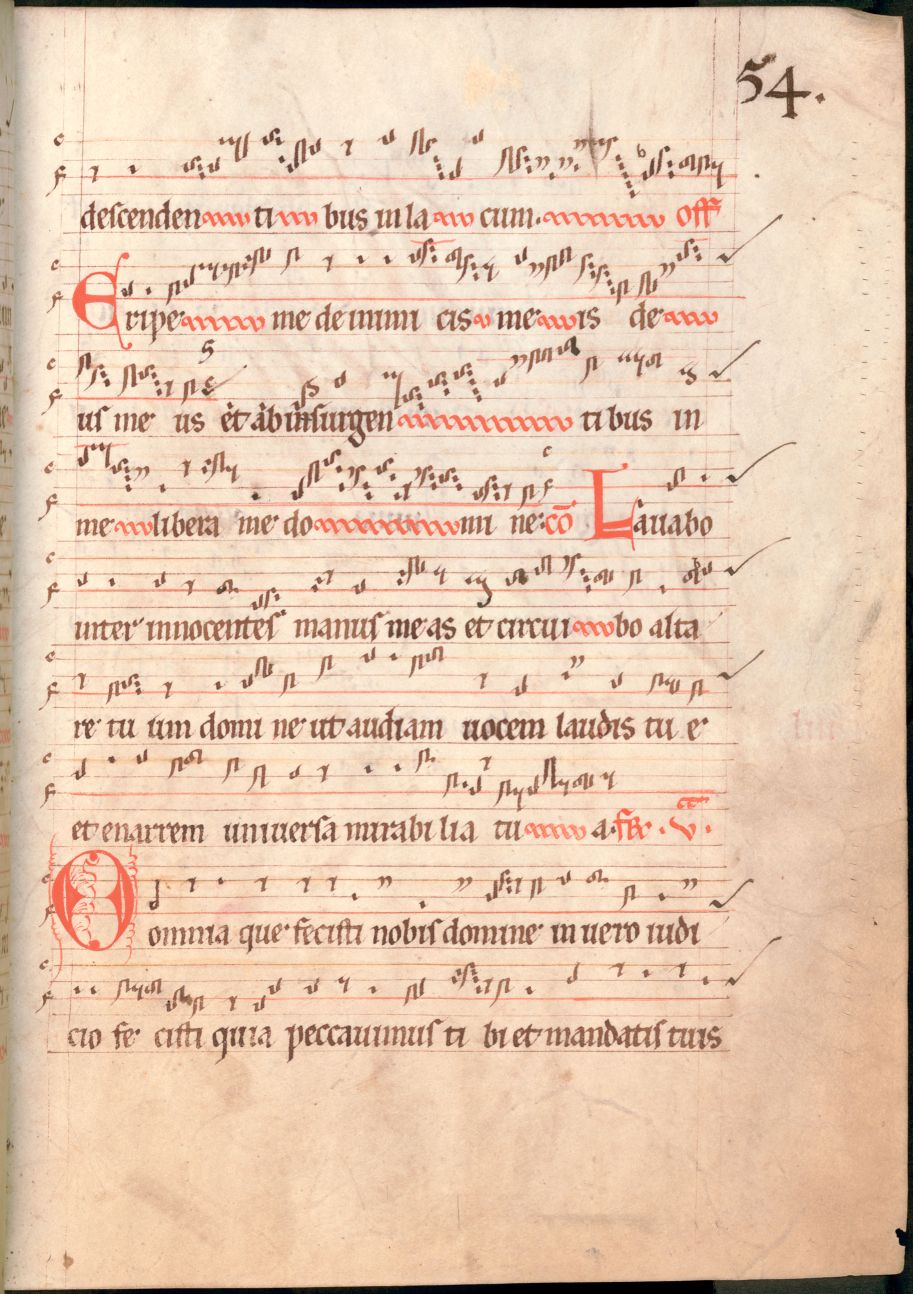 54.
descenden ti bus in la cum. off̄
Eripe me de inimi cis me is de
us me us et ab insurgen tibus in
me libera me do mi ne. cō Lauabo
inter innocentes manus meas et circui bo alta
re tu um domi ne ut audiam uocem laudis tu e
et enarrem uniuersa mirabi lia tu a.
Omnia que fecisti nobis domine in uero iudi
cio fe cisti quia peccauimus ti bi et mandatis tuis